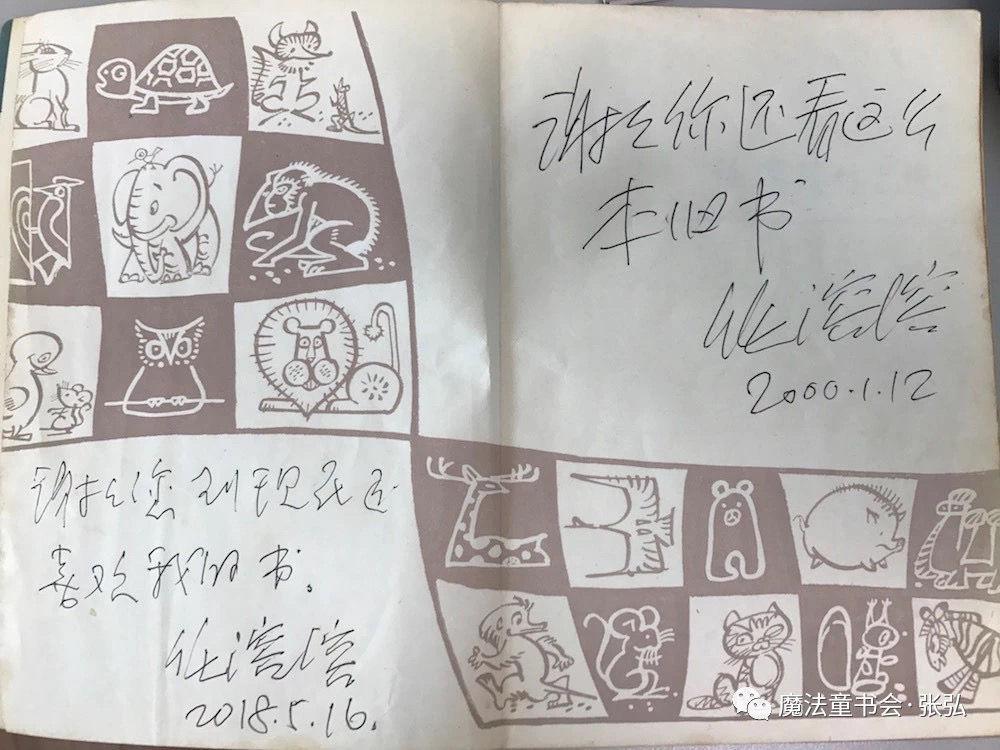 谢谢你还看这么
本旧书
任溶溶
2000.1.12
谢谢您到现在还
喜欢我的书。
任溶溶
2018.5.16.
魔法童书会·张弘